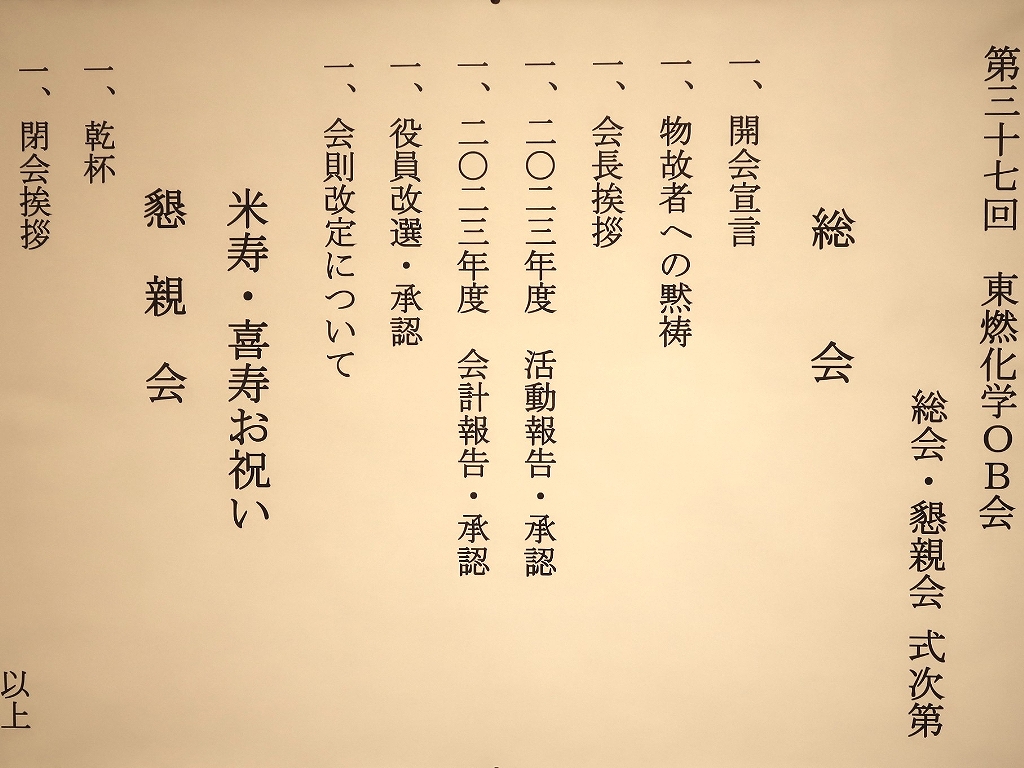 第三十七回　東燃化学ＯＢ会
総会・懇親会 式次第
総　会
一、開会宣言
一、物故者への黙祷
一、会長挨拶
一、二〇二三年度　活動報告・承認
一、二〇二三年度　会計報告・承認
一、役員改選・承認
一、会則改定について
米寿・喜寿お祝い
懇　親　会
一、乾杯
一、閉会挨拶
以上